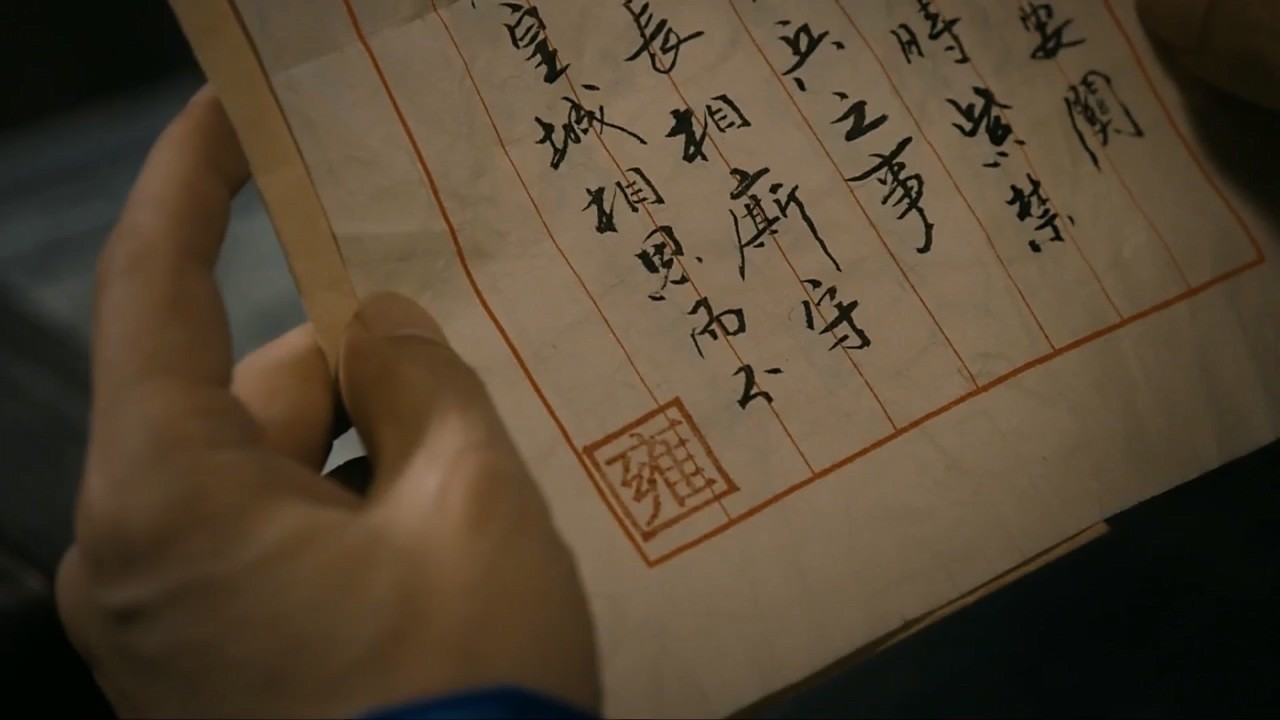 要關
時紫禁
兵之事
長相廝守
皇城相思而不
雍